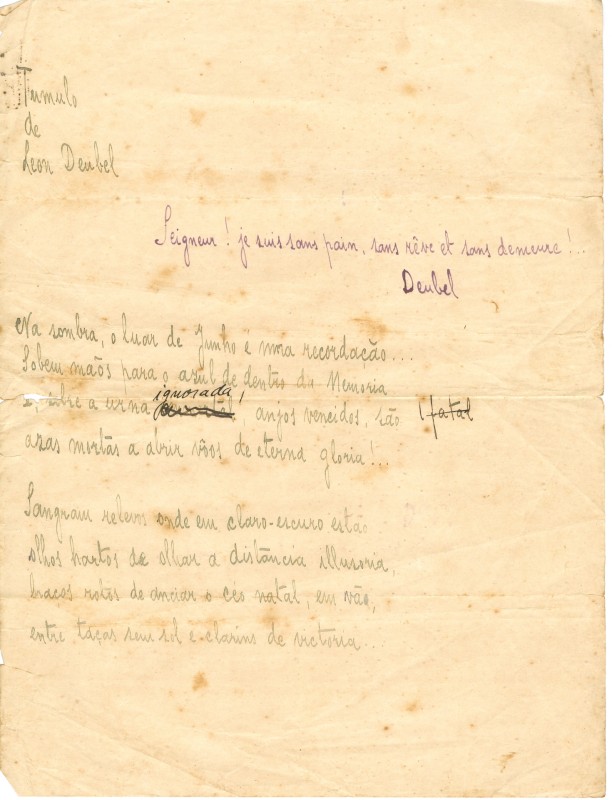 Tumulo
de
Leon Deubel
Seigneur! je suis sans pain, sans rêve et sans demeure!..
Deubel
Na sombra, o luar de Junho é uma recordação...
Sobem mãos para o azul de dentro da Memoria
e, sobre a urna ignorada, anjos vencidos, são fatal
azas mortas a abrir vôos de eterna gloria!..
Sangram relevos onde em claro-escuro estão
olhos hartos de olhar a distância illusoria,
braços rotos de anciar o céo natal, em vão,
entre taças sem sol e clarins de victoria...